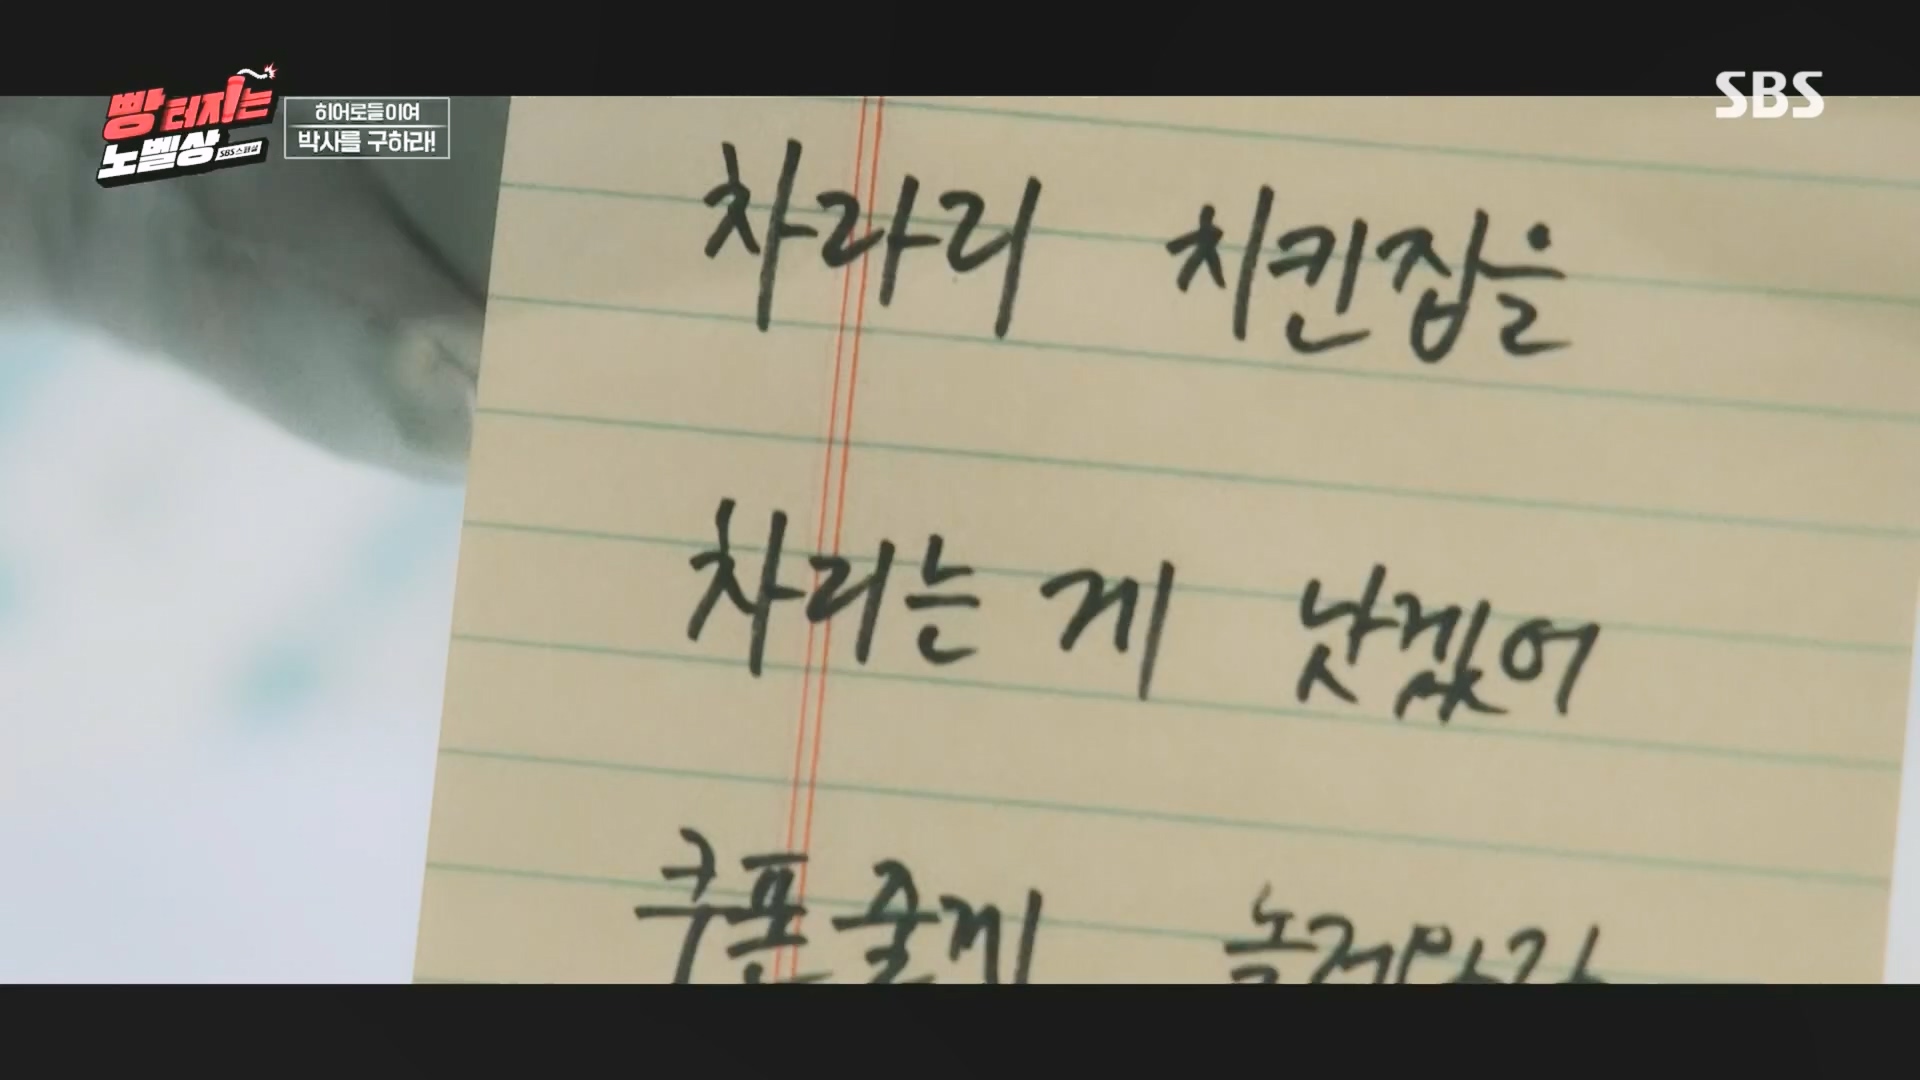 빵 터지는
노벨상
SBS 스페셜
히어로들이여
박사를 구하라!
SBS
차라리 치킨집을
차리는 게 낫겠어
쿠폰 줄게